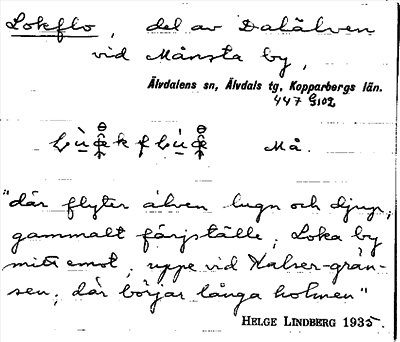 Lokflo, del av Dalälven
vid Månsta by,
Älvdalens sn, Älvdals tg, Kopparbergs län.
447 G102
Må.
"där flyter älven lugn och djup,
gammalt färjställe, Loka by
mitt emot, uppe vid Kalser-grän-
sen; där börjar långa holmen"
HELGE LINDBERG 1935.